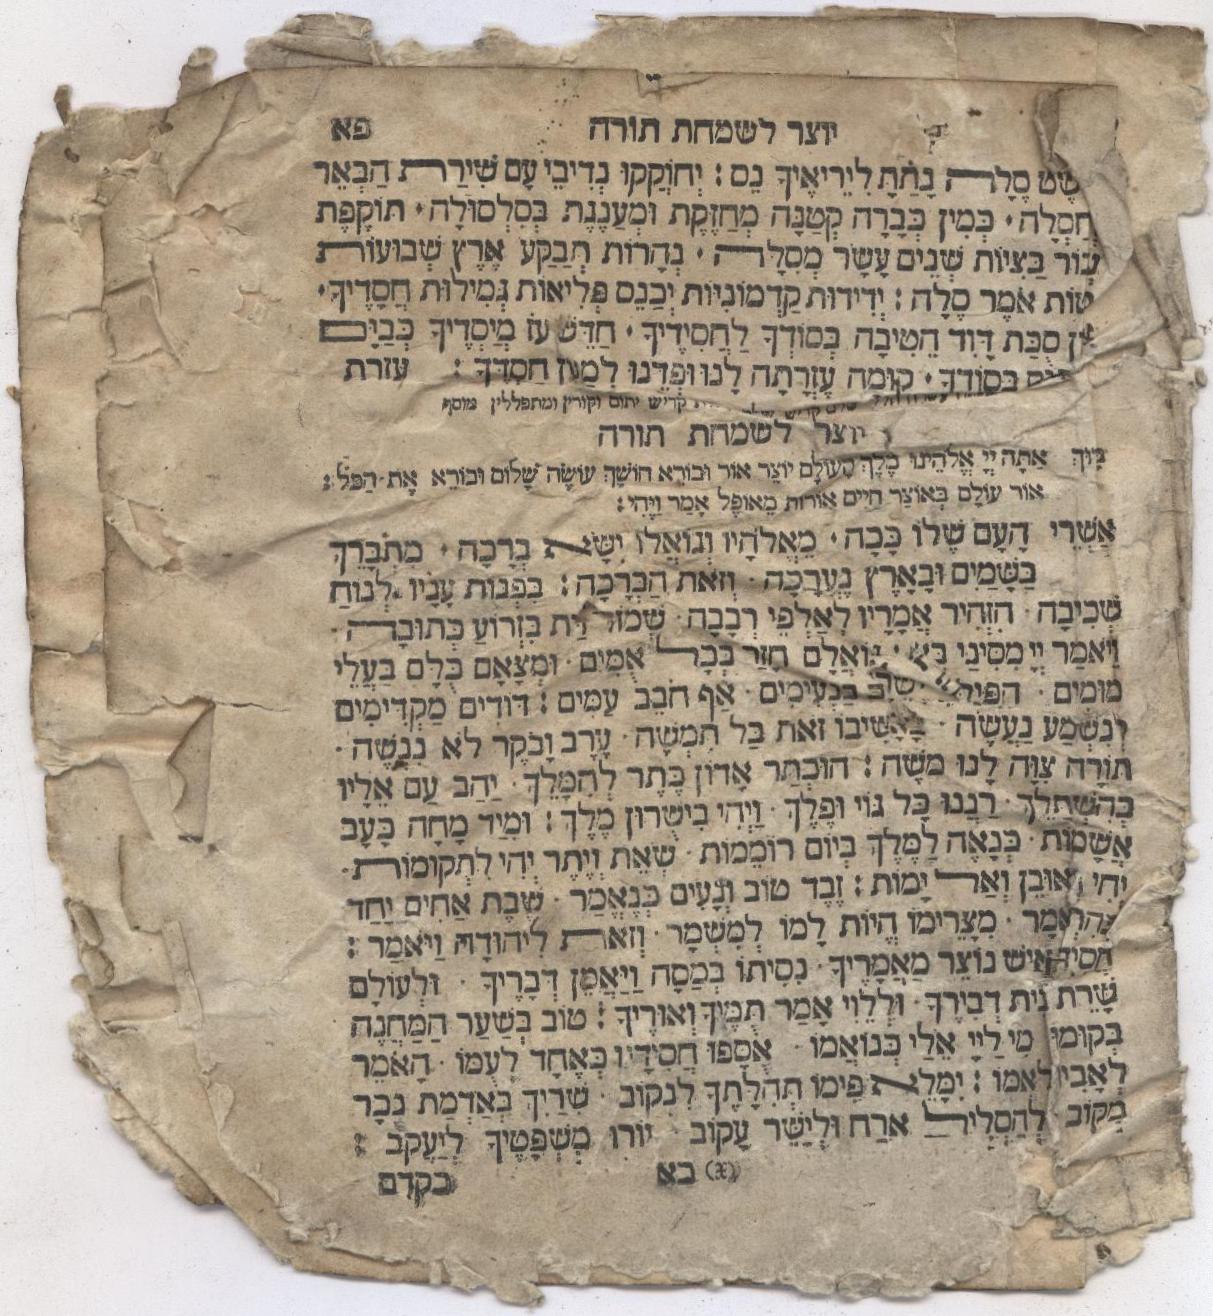 יוצר לשמחת תורה פא
סֶלָה נָתַתָּ לִירֵיאֶיךָ נֵס : יְחוֹקְקוּ נְדִיבֵי עָם שִׁירַת הַבְּאֵר
חֲסָלָה · כְּמִין כְּבָרָה קְטַנָּה מְחַזֶּקֶת וּמְעַנֶּגֶת בְּסִלְסוּלָהּ · תּוֹקֶפֶת
בַּצִּיוֹת שְׁנֵים עָשָׂר מְסִלָּה · נְהָרוֹת תְּבַקַּע אֶרֶץ שְׁבוּעוֹת
אֹמֶר סֶלָה : יְדִידוּת קַדְמוֹנִיּוֹת יְכַנֵּס פְּלִיאוֹת גְּמִילוּת חֲסָדֶיךָ ·
סֻכַּת דָּוִד הֵטִיבָה בְּסוֹדְךָ לַחֲסִידֶיךָ · חַדֵּשׁ עוֹז מְיַסְּדֶיךָ כְּבַיָּם
בְּסוֹדֶךָ · קוּמָה עֶזְרָתָה לָנוּ וּפְדֵנוּ לְמַעַן חַסְדֶּךָ : עזרת
קדיש יתום וקורין ומתפללין מוסף
יוצר לשמחת תורה
אַתָּה יְיָ אֱלֹהֵינוּ מֶלֶךְ הָעוֹלָם יוֹצֵר אוֹר וּבוֹרֵא חוֹשֶׁךְ עוֹשֶׂה שָׁלוֹם וּבוֹרֵא אֶת הַכֹּל :
אוֹר עוֹלָם בְּאוֹצַר חַיִּים אוֹרוֹת מֵאוֹפֶל אָמַר וַיֶּהִי :
אַשְׁרֵי הָעָם שֶׁלּוֹ כָּכָה · מֵאֱלֹהָיו וְגוֹאֲלוֹ יִשָּׂא בְרָכָה · מִתְבָּרֵךְ
בַּשָּׁמַיִם וּבָאָרֶץ נֶעֱרָכָה · וְזֹאת הַבְּרָכָה : בִּפְנוֹת עָנָיו לְנוּחַ
שְׁכִיבָה · הִזְהִיר אֲמָרָיו לְאַלְפֵי רְבָבָה · דָּת בִּזְרוֹעַ כְּתוּבָה ·
וַיֹּאמַר יְיָ מִסִּינַי בָּא · גּוֹאֲלָם חִזַּר בְּכָל אֻמִּים · וּמְצָאָם כֻּלָּם בַּעֲלֵי
מוּמִים · בַּנְּעִימִים · אַף חֹבֵב עַמִּים : דּוֹדִים מַקְדִּימִים
וְנִשְׁמַע נַעֲשֶׂה · זֹאת בַּל תִּמָּשֶׁה · עֶרֶב וָבֹקֶר לֹא נִנָּשֶׁה ·
תּוֹרָה צִוָּה לָנוּ מֹשֶׁה : הוּכְתַּר אָדוֹן כֶּתֶר לְהִמָּלֵךְ · יַהַב עַם אֵלָיו
בְּהִשְׁתַּלֵּךְ · רִנְּנוּ כָּל גּוֹי וּפֶלֶךְ · וַיְהִי בִישֻׁרוּן מֶלֶךְ : וּמִיַּד מָחָה כָעָב
אֲשָׁמוֹת · כְּנָאֶה לַמֶּלֶךְ בְּיוֹם רוֹמֵמוֹת · שְׂאֵת וְיֶתֶר יְהִי לִתְקוּמוֹת ·
יְחִי רְאוּבֵן וְאַל יָמוֹת : זֶבֶד טוֹב וְנָעִים כְּנֶאֱמַר · שֶׁבֶת אַחִים יַחַד
מִצָּרֵימוֹ הֱיוֹת לָמוֹ לְמִשְׁמָר · וְזֹאת לִיהוּדָה וַיֹּאמַר :
חָסִיד אִישׁ נוֹצֵר מַאֲמָרֶיךָ · נִסִּיתוֹ בְּמַסָּה וַיַּאֲמֵן דְּבָרֶיךָ · וּלְעוֹלָם
שָׁרֵת בֵּית דְּבִירֶךָ · וּלְלֵוִי אָמַר תֻּמֶּיךָ וְאוּרֶיךָ : טוֹב בְּשַׁעַר הַמַּחֲנֶה
בְּקוּמוֹ · מִי לַיְיָ אֵלַי בְּנוֹאֲמוֹ · אֻסְּפוּ חֲסִידָיו כְּאֶחָד לְעַמּוֹ · הָאֹמֵר
לְאָבִיו לְאִמּוֹ : יִמָּלֵא פִימוֹ תְּהִלָּתְךָ לִנְקוֹב · שָׁרֶיךָ בְּאַדְמַת נֵכָר
מִקּוֹב · לְהַסְלִיל אֹרַח וּלְיַשֵּׁר עָקוֹב · יוֹרוּ מִשְׁפָּטֶיךָ לְיַעֲקֹב :
(x) כא בקדם